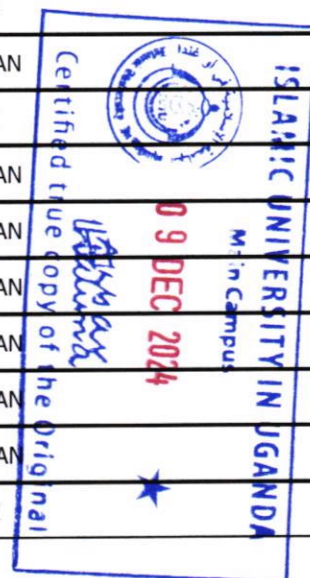 AN
AN
AN
AN
AN
AN
AN
ISLAMIC UNIVERSITY IN UGANDA
Main Campus
09 DEC 2024
Certified true copy of the Original